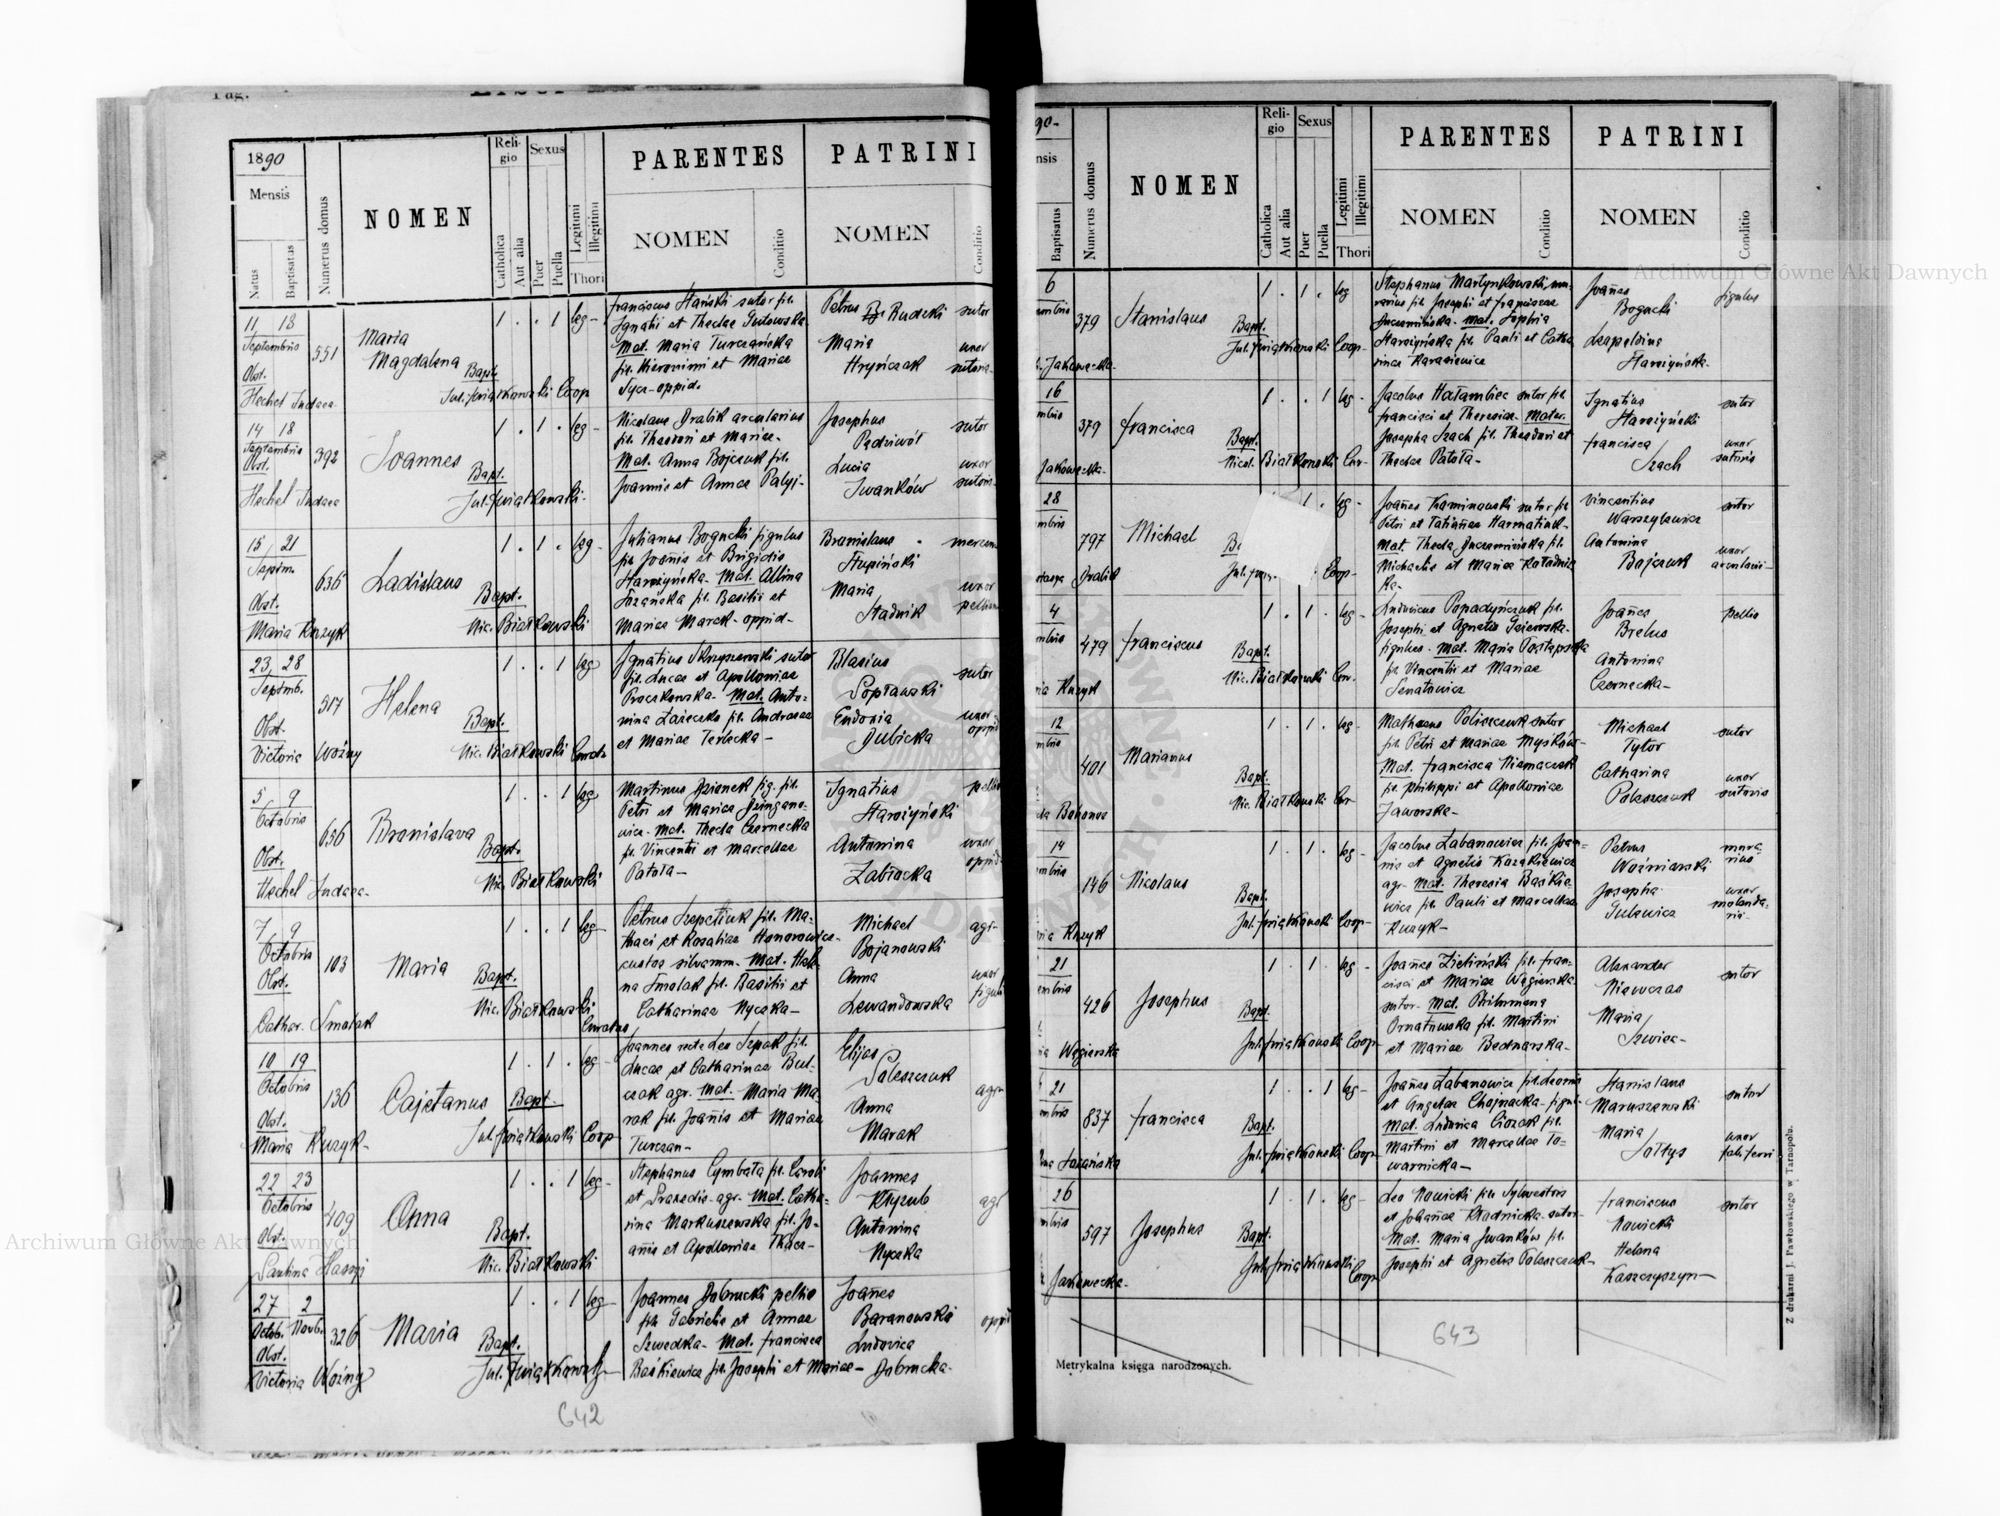 Pag.
1890
Mensis
Natus
Baptisatus
Numerus domus
NOMEN
Religio
Catholica
Aut alia
Sexus
Puer
Puella
Legitimi
Illegitimi
Thori
PARENTES
NOMEN
Conditio
PATRINI
NOMEN
Conditio
11 13
Septembris
551
Obst.
Hechel Judaea
Maria
Magdalena
Bapt.
Jul. Kwiatkowski Coop
1 . . 1 leg-
Franciscus Hański sutor fil.
Ignatii et Theclae Gutowska
Mat. Maria Turczańska
fil. Hieronimi et Mariae
Syca - oppid.
Petrus Rudzki sutor
Maria uxor
Hryńczak sutoris
14 18
Septembris
Obst.
392
Hechel Judaea
Joannes
Bapt.
Jul. Kwiatkowski-
1 . 1 . leg-
Nicolaus Dralik arcularius
fil. Theodori et Mariae-
Mat. Anna Bojczuk fil.
Joannis et Annae Palij-
Josephus sutor
Padziwół
Lucia uxor
Iwanków sutoris
15 21
Septem.
636
Obst.
Maria Kuzyk
Ladislaus
Bapt.
Nic. Białkowski
1 . 1 . leg-
Julianus Bogucki figulus
fil. Joannis et Brigidis
Harożyńska- Mat. Albina
Łozańska fil. Basilii et
Mariae Marek- oppid-
Bronislaus
Słupiński
Maria uxor
Stadnik
23 28
Septemb.
517
Obst.
Victoria Woźny
Helena
Bapt.
Nic. Białkowski Curat
1 . . 1 leg
Ignatius Skrzyszewski sutor
fil. Lucae et Apolloniae
Proczkowska- Mat. Anto-
nina Łażeczko fil. Andreae
et Mariae Terlecka-
Blasius sutor
Sopławski
Eudoxia uxor
Dubicka oppid
5 9
Octobris
656
Obst.
Hechel Judaea-
Bronislava
Bapt.
Nic. Białkowski
1 . . 1 leg
Martinus Dzionek fig. fil.
Petri et Mariae Dzingano-
wicz- Mat. Thecla Czernecka
fil. Vincentii et Marcellae
Patoła-
Ignatius pellio
Harożyński
Antonina uxor
Zabłocka oppid-
7 9
Octobris
103
Obst.
Cathar. Smolak
Maria
Bapt.
Nic. Białkowski
Curatus
1 . . 1 leg-
Petrus Szpetiuk fil. Ma-
thaei et Rosaliae Honorowicz-
custos silvarum- Mat. Hele-
na Smolak fil. Basilii et
Catharinae Nyczka-
Michael agr-
Bojanowski
Anna uxor
Lewandowska figuli
10 19
Octobris
136
Obst.
Maria Kuzyk-
Cajetanus
Bapt.
Jul. Kwiatkowski Coop
1 . 1 . leg-
Joannes recte Leo Szpak fil.
Lucae et Catharinae But-
czak agr. Mat. Maria Ma-
rak fil. Joannis et Mariae
Turczan-
Elijas
Poleszczuk
Anna agr-
Marak
22 23
Octobris
409
Obst.
Paulina
Anna
Bapt.
Nic. Białkowski
1 . . 1 leg-
Stephanus Cymbała fil. Caroli
et Praxedis- agr- Mat. Catha-
rina Markuszewska fil. Jo-
annis et Apolloniae Tkacz-
Joannes
Antonina agr
Nyczka
27 2
Octob. Novb.
326
Obst.
Victoria Woźny
Maria
Bapt.
Jul. Kwiatkowski
1 . . 1 leg-
Joannes Dobrucki pellio
fil. Gabrielis et Annae
Szwedka- Mat. Francisca
Baśkiewicz fil. Josephi et Mariae-
Joannes
Baranowski oppid
Ludovica
Dobrucka-
642
90-
nsis
Baptisatus
Numerus domus
NOMEN
Religio
Catholica
Aut alia
Sexus
Puer
Puella
Legitimi
Illegitimi
Thori
PARENTES
NOMEN
Conditio
PATRINI
NOMEN
Conditio
6
mbris
379
Jakowecka-
Stanislaus
Bapt.
Jul. Kwiatkowski Coop-
1 . 1 . leg
Stephanus Martynkowski, mu-
rarius fil. Josephi et Franciscae
Juczamińska- Mat. Sophia
Harożyńska fil. Pauli et Catha-
rinae Karasiewicz
Joannes figulus
Bogucki
Leopoldina
Harożyńska-
16
mbris
379
Jakowecka-
Francisca
Bapt.
Nicol. Białkowski Cur-
1 . . 1 leg-
Jacobus Hałambiec sutor fil.
Francisci et Theresiae- Mater.
Josepha Szach fil. Theodori et
Theclae Patoła-
Ignatius sutor
Harożyński
Francisca uxor
Szach sutoris
28
mbris
797
Dralik
Michael
Coop-
1 . leg-
Joannes Kaminowski sutor fil.
Petri et Tatiannae Harmatiuk-
Mat. Thecla Juczamińska fil.
Michaelis et Mariae Kołodnic-
ka-
Vincentius sutor
Warszylewicz
Antonina uxor
Bojczuk arcularii-
4
mbris
479
Kuzyk
Franciscus
Bapt.
Nic. Białkowski Cur-
1 . 1 . leg-
Ludovicus Popadyńczuk fil.
Josephi et Agnetis Gajewska-
figulus- Mat. Maria Postapska
fil. Vincentii et Mariae
Senatowicz
Joannes pellio
Brelus
Antonina
Czernecka-
12
mbris
401
Marianus
Bapt.
Nic. Białkowski Cur-
1 . 1 . leg-
Mathaeus Poliszczuk sutor
fil. Petri et Mariae Myśków-
Mat. Francisca Niemaczek
fil. Philippi et Apolloniae
Jaworska-
Michael sutor
Tytor
Catharina uxor
Poleszczuk sutoris
14
mbris
146
Kuzyk
Nicolaus
Bapt.
Jul. Kwiatkowski Coop-
1 . 1 . leg-
Jacobus Łabanowicz fil. Joan-
nis et Agnetis Kozakiewicz
agr- Mat. Theresia Baśkie-
wicz fil. Pauli et Marcellae
Kuzyk-
Petrus mura-
Woźniarski rius
Josepha uxor
Gulewicz molendi-
21
embris
426
Węgierska
Josephus
Bapt.
Jul. Kwiatkowski Coop-
1 . 1 . leg-
Joannes Zieliński fil. Fran-
cisci et Mariae Węgierska
sutor- Mat. Philomena
Ornatowska fil. Martini
et Mariae Bednarska-
Alexander sutor
Niewczas
Maria
Szwiec-
21
mbris
837
Łozańska
Francisca
Bapt.
Jul. Kwiatkowski Coop-
1 . . 1 leg-
Joannes Łabanowicz fil. Leonis
et Angelae Chojnacka- figul-
Mat. Ludovica Ciozak fil.
Martini et Marcellae To-
warnicka-
Stanislaus sutor
Maruszewski
Maria uxor
Sołtys
26
mbris
597
Jakowecka-
Josephus
Bapt.
Jul. Kwiatkowski
Coop
1 . 1 . leg-
Leo Nowicki fil. Sylwestris
et Johannae Kładnicka- sutor-
Mat. Maria Iwanków fil.
Josephi et Agnetis Poleszczuk-
Franciscus sutor
Nowicki
Helena
Kaszczyszyn-
643
Metrykalna księga narodzonych.
Z drukarni J. Pawłowskiego w Tarnopolu.
Archiwum Główne Akt Dawnych
Archiwum Główne Akt Dawnych